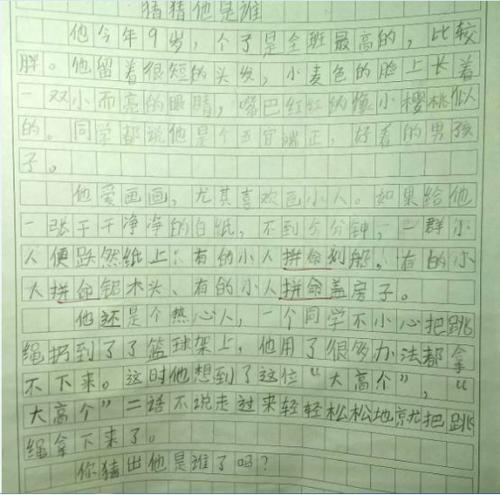 猜猜他是谁
他今年9岁，个子是全班最高的，比较
胖。他留着很短的头发，小麦色的脸上长着
一双小而亮的眼睛，嘴巴红红的像小樱桃似
的。同学都说他是个五官端正，好看的男孩
子。
他爱画画，尤其喜欢画小人。如果给他
一张干干净净的白纸，不到分钟，一群小
人便跃然纸上：有的小人拼命划船，有的小
大拼命锯木头、有的小人拼命盖房子。
他还是个热心人，一个同学不小心把跳
绳扔到了了篮球架上，他用了很多办法都拿
不下来。这时他想到了这位“大高个”，“
大高个”二话不说走过来轻轻松松地就把跳
绳拿下来了。
你猜出他是谁了吗？